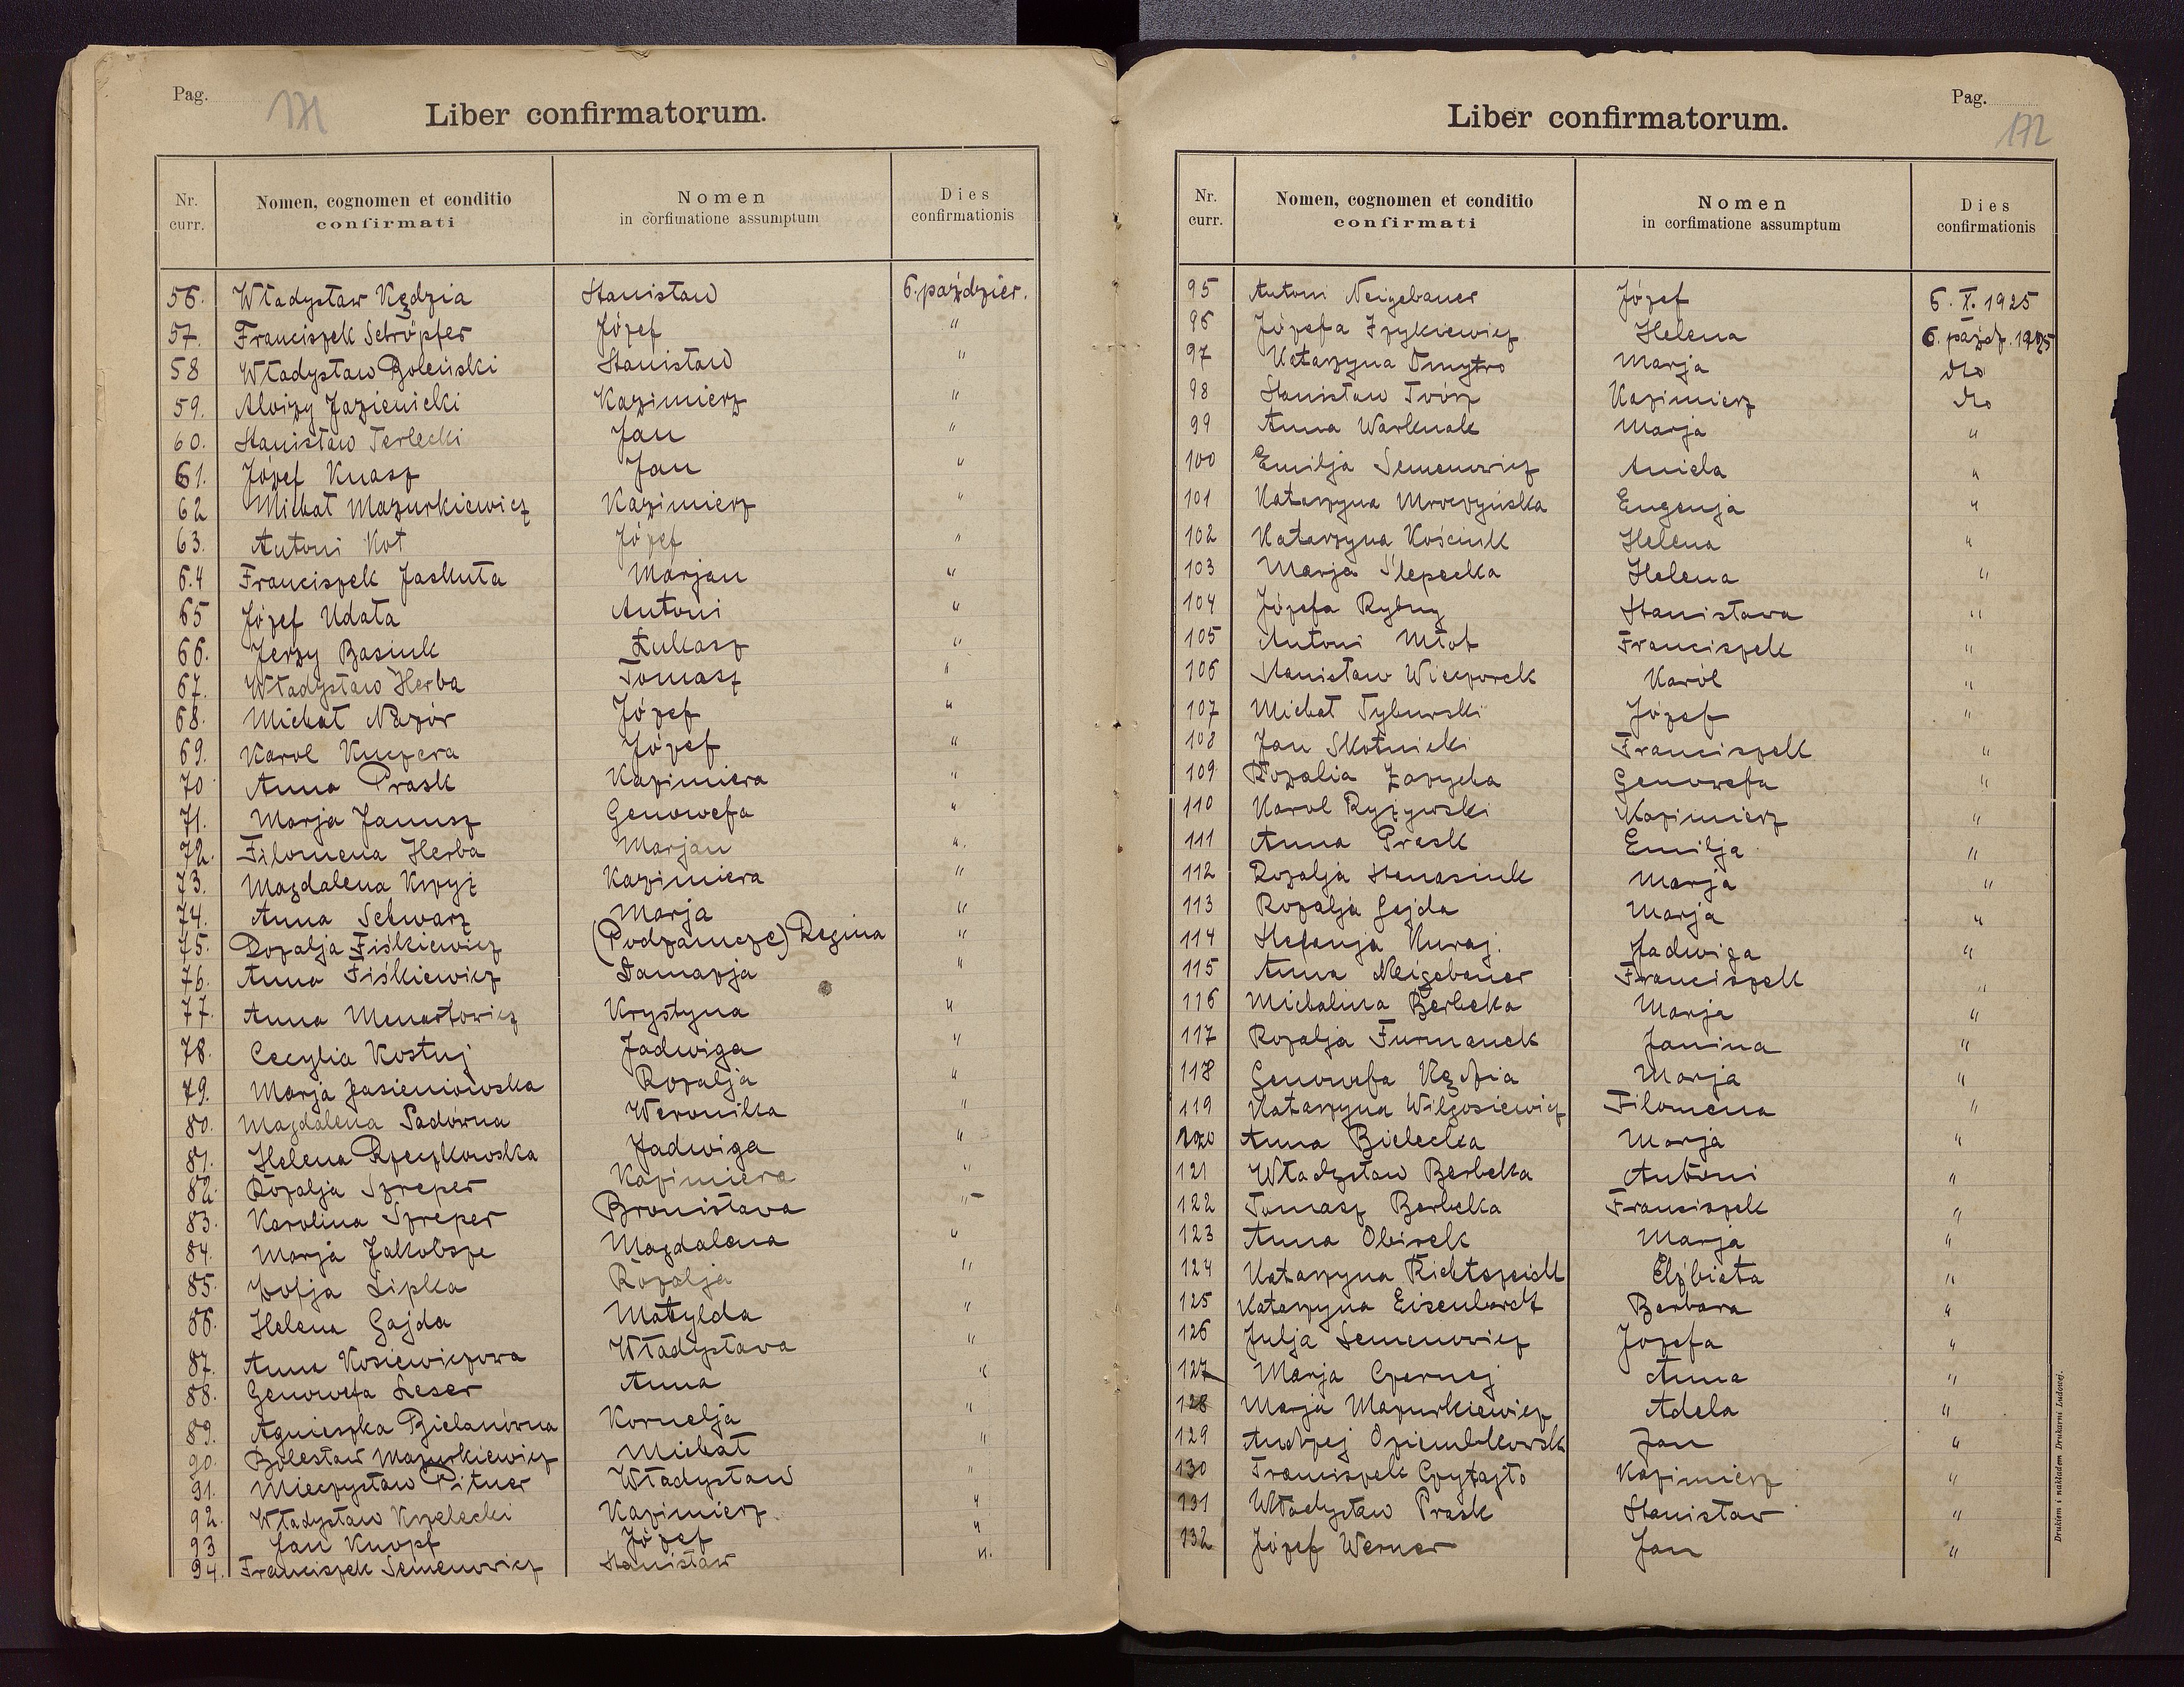 Pag.
171
Liber confirmatorum.
Nr. curr.
Nomen, cognomen et conditio confirmati
Nomen in corfimatione assumptum
Dies confirmationis
56. Władysław Kędzia Stanisław 6. paździer.
57. Franciszek Schröpfer Józef "
58 Władysław Boleński Stanisław "
59. Alojzy Jazienicki Kazimierz "
60. Stanisław Terlecki Jan "
61. Józef Knasz Jan "
62 Michał Mazurkiewicz Kazimierz "
63. Antoni Kot Józef "
64 Franciszek Jaskuła Marjan "
65 Józef Udała Antoni "
66. Jerzy Basiuk Łukasz "
67. Władysław Herba Tomasz "
68. Michał Nazór Józef "
69. Karol Kuczera Józef "
70 Anna Prask Kazimiera "
71. Marja Janusz Genowefa "
72. Filomena Herba Marjan "
73. Magdalena Krzyż Kazimiera "
74. Anna Schwarz Marja "
75. Rozalja Fiśkiewicz (Podzamcze) Regina "
76. Anna Fiśkiewicz Damazja "
77. Anna Menartowicz Krystyna "
78. Cecylia Kostuj Jadwiga "
79. Marja Jasieniowska Rozalja "
80. Magdalena Sadówna Weronika "
81. Helena Rzeczkowska Jadwiga "
82. Rozalja Szreper Kazimiera "
83. Karolina Szreper Bronisława "
84. Marja Jakobsze Magdalena "
85. Zofja Lipka Rozalja "
86. Helena Gajda Matylda "
87. Anna Kosiewiczowa Władysława "
88. Genowefa Leser Anna "
89. Agnieszka Bielanówna Kornelja "
90. Bolesław Mazurkiewicz Michał "
91. Mieczysław Pitner Władysław "
92. Władysław Krzelecki Kazimierz "
93 Jan Knopf Józef "
94. Franciszek Semenowicz Stanisław "
Pag.
172
Liber confirmatorum.
Nr. curr.
Nomen, cognomen et conditio confirmati
Nomen in corfimatione assumptum
Dies confirmationis
95 Antoni Neigebauer Józef 6. X. 1925
96 Józefa Izykiewicz Helena 6. paźdz. 1925
97 Katarzyna Dmytro Marja dto
98 Stanisław Twórz Kazimierz dto
99 Anna Warknak Marja "
100 Emilja Semenowicz Aniela "
101 Katarzyna Mroczyńska Eugenja "
102 Katarzyna Kościuk Helena "
103 Marja Ślepecka Helena "
104 Józefa Rybny Stanisława "
105 Antoni Młot Franciszek "
106 Stanisław Wieczorek Karól "
107 Michał Tyburski Józef "
108 Jan Skotnicki Franciszek "
109 Rozalia Zazycka Genowefa "
110 Karol Ryżywski Kazimierz "
111 Anna Prask Emilja "
112 Rozalja Stenasiuk Marja "
113 Rozalja Gajda Marja "
114 Stefanja Kuraj. Jadwiga "
115 Anna Neigebauer Franciszek "
116 Michalina Berbeka Marja "
117 Rozalja Furmanek Janina "
118 Genowefa Kędzia Marja "
119 Katarzyna Wilgosiewicz Filomena "
120 Anna Bielecka Marja "
121 Władysław Berbeka Antoni "
122 Tomasz Berbeka Franciszek "
123 Anna Obirek Marja "
124 Katarzyna Richtszeidt Elżbieta "
125 Katarzyna Eisenbardt Barbara "
126 Julja Semenowicz Józefa "
127 Marja Czernej Anna "
128 Marja Mazurkiewicz Adela "
129 Andrzej Oziembłowski Jan "
130 Franciszek Czyżajto Kazimierz "
131 Władysław Prask Stanisław "
132 Józef Werner Jan "
Drukiem i nakładem Drukarni Ludowej.